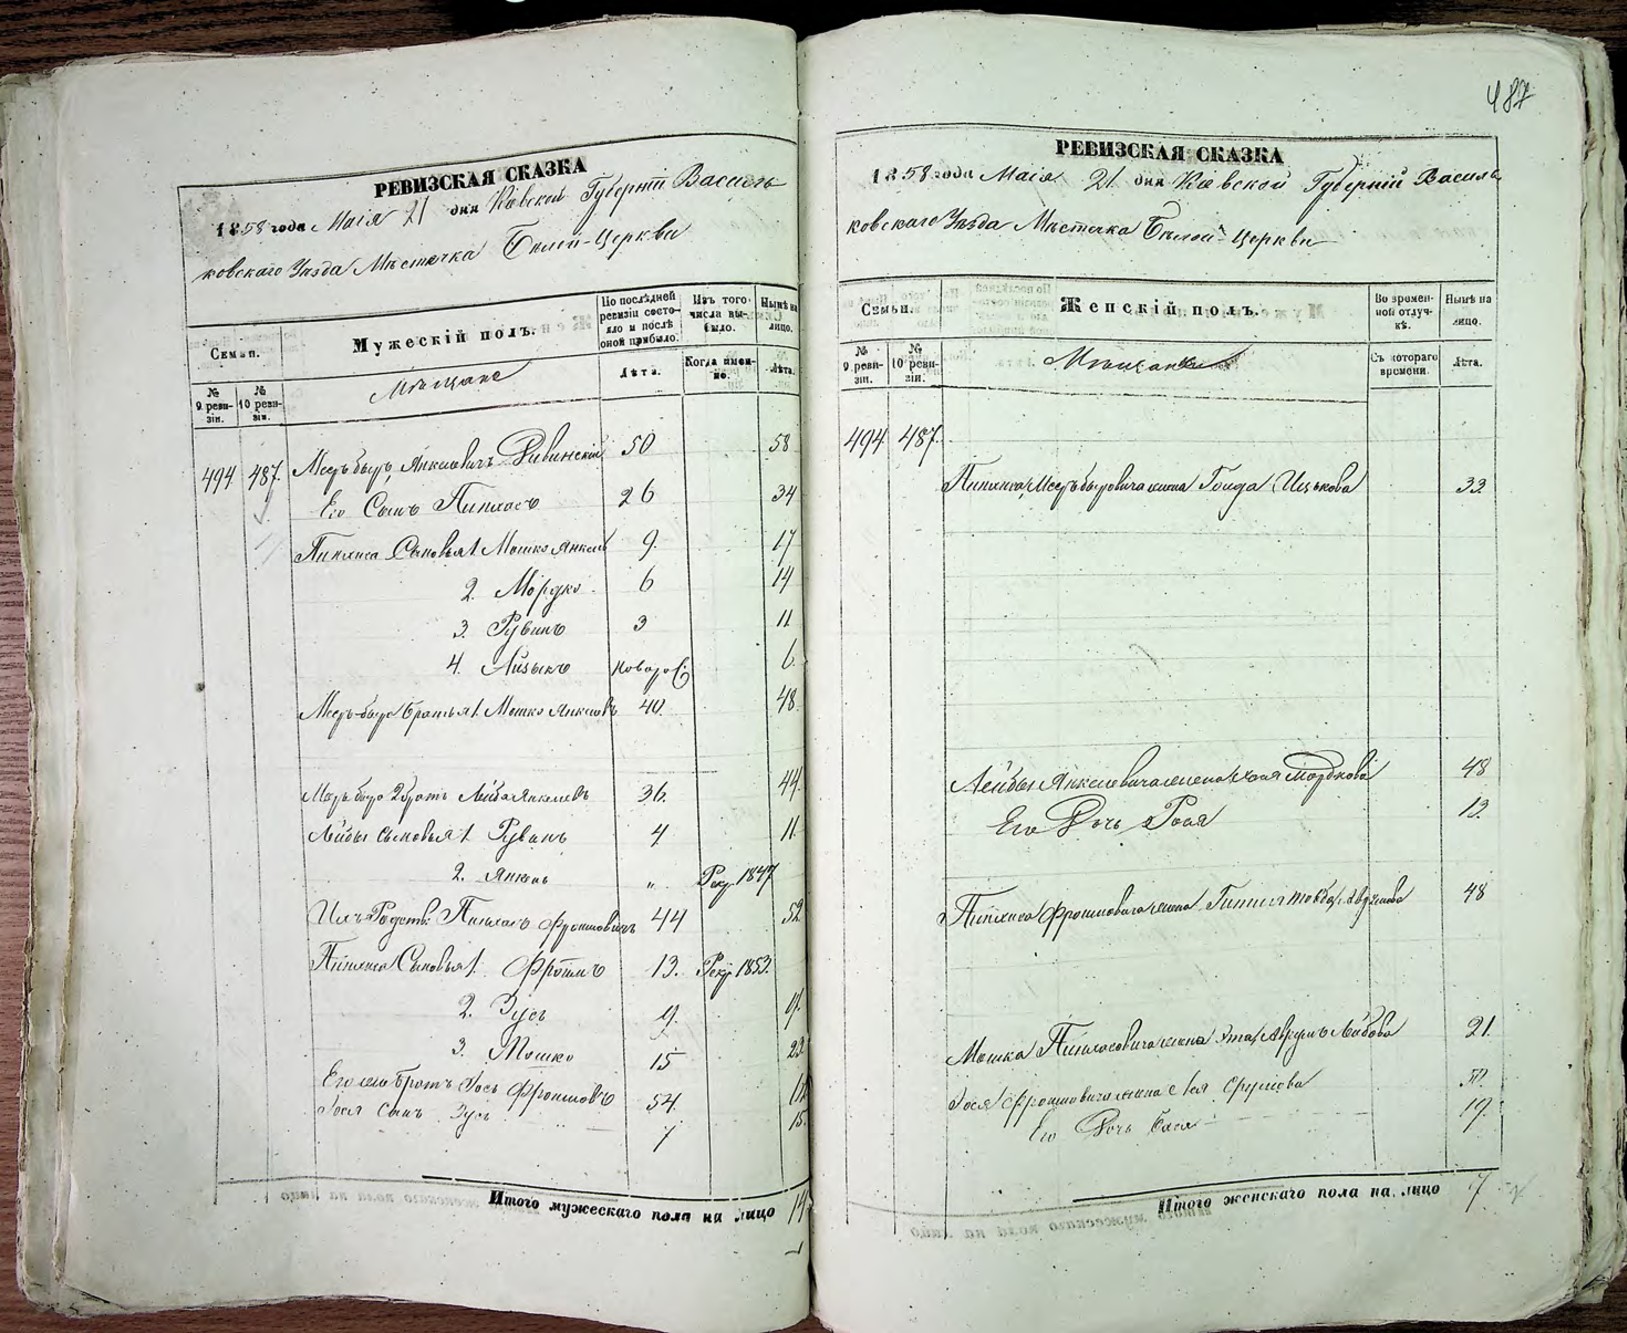 487
РЕВИЗСКАЯ СКАЗКА
1858 года Маія 21 дня Кіевской Губерніи Василь
ковскаго Уѣзда Мѣстечка Бѣлой-Церкви
Семьи.
Мужескій полъ.
По послѣдней ревизіи состояло и послѣ оной прибыло.
Изъ того числа выбыло.
Нынѣ на лицо.
№ 9 ревизіи.
№ 10 ревизіи.
Мѣщане
Лѣта.
Когда именно.
Лѣта.
494 487 Янкелевичъ 50 58
Его Сынъ Пинхасъ 26 34
Пинхаса Сыновья 1. Мошко Янкель 9. 17
2. Мордко 6 14
3. Рувинъ 3 11
4. Айзыкъ 6
Братья 1. Мошко Янкелевъ 40. 48.
2 братъ Лейба Янкелевъ 36. 44.
Лейбы сыновья 1. Рувинъ 4 11
2. Янкель " Рекр. 1847
Ихъ Родств. Пинхасъ Фроимовичъ 44 52
Пинхаса Сыновья 1. Фроимъ 13. Рекр. 1853.
2. Зусь 9. 17.
3. Мошко 15 23
Его же братъ Іось Фроимовъ 54.
Іося Сынъ Зусь 7 15.
Итого мужескаго пола на лицо 14
РЕВИЗСКАЯ СКАЗКА
1858 года Маія 21 дня Кіевской Губерніи Василь
ковскаго Уѣзда Мѣстечка Бѣлой-Церкви
Семьи.
Женскій полъ.
Во временной отлучкѣ.
Нынѣ на лицо.
№ 9 ревизіи.
№ 10 ревизіи.
Мѣщанки
Съ котораго времени.
Лѣта.
494 487.
Пинхаса жена Голда Ицькова 33.
Лейбы Янкелевича жена Хая Мордкова 48
Его Дочь Рося 13.
Пинхаса Фроимовича жена 48
Мошка Пинхасовича жена Лейбова 21.
Іося Фроимовича жена 50.
Его Дочь Бася 19.
Итого женскаго пола на лицо 7